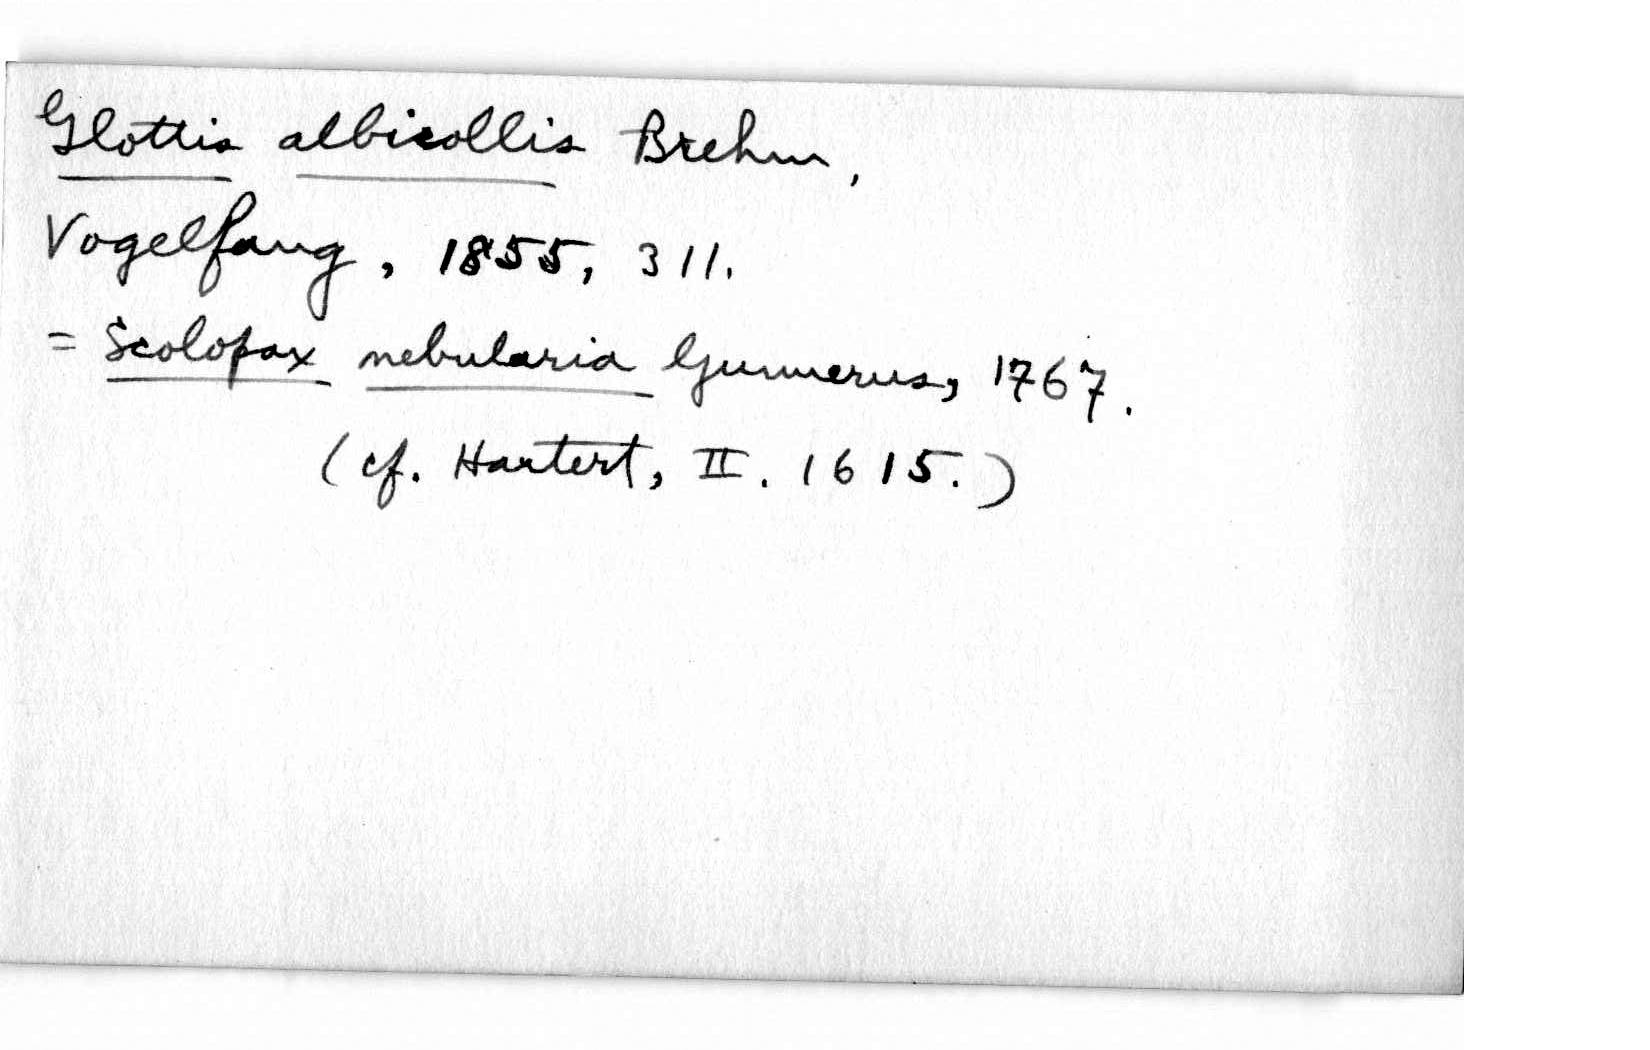 Glottis albicollis Brehm,
Vogelfang, 1855, 311.
= Scolopax nebularia Gunnerus, 1767.
(cf. Hartert, II. 1615.)